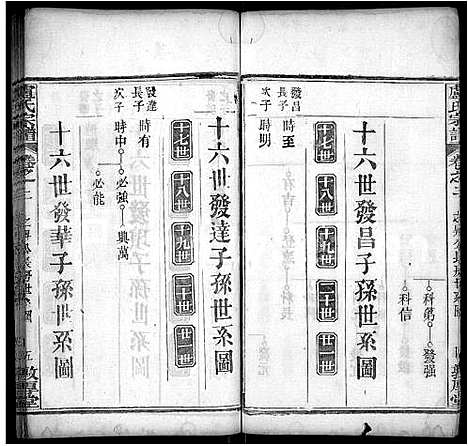 盧氏宗譜
卷之二
敦厚堂
科第
發强
科信
十六世發昌子孫世系圖
十七世
十八世
十九世
二十世
廿一世
發昌
長子
次子
時明
十六世發達子孫世系圖
十七世
十八世
十九世
二十世
廿一世
發達
長子
次子
時有
時中
必强
興萬
必能
十六世發華子孫世系圖
盧氏宗譜
卷之二
五
敦厚堂